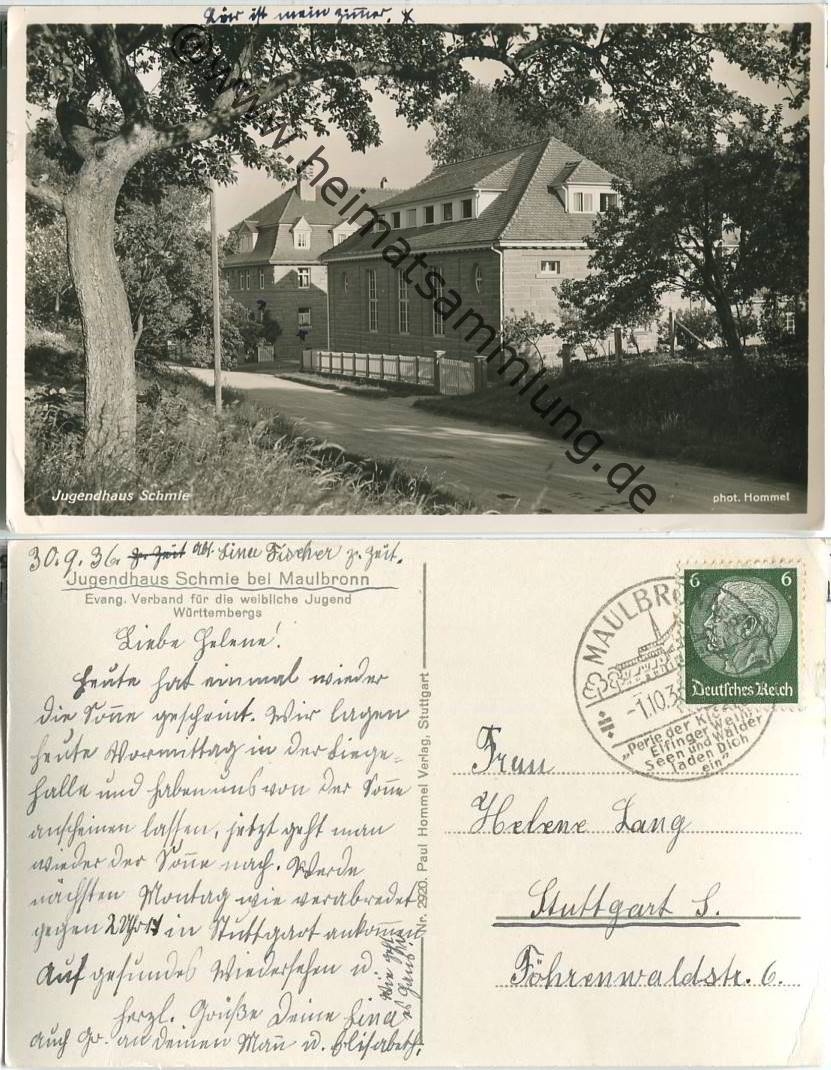 Hier ist mein Zimmer. x
©www.heimatsammlung.de
Jugendhaus Schmie
phot. Hommel
30.9.36. z. Zeit Abs. Lina Fischer z. Zeit.
Jugendhaus Schmie bei Maulbronn
Evang. Verband für die weibliche Jugend
Württembergs
Liebe Helene!
Heute hat einmal wieder
die Sonne gescheint. Wir lagen
heute Vormittag in der Liege-
halle und haben uns von der Sonne
anscheinen lassen, jetzt geht man
wieder der Sonne nach. Werde
nächsten Montag wie verabredet
gegen 2 Uhr in Stuttgart ankommen
Auf gesundes Wiedersehen u.
herzl. Grüße Deine Lina
auch Gr. an deinen Mann u. Elisabeth.
Wie geht
es
Nr. 2920. Paul Hommel Verlag, Stuttgart
MAULBR
-1.10.3
"Perle der
Elfinger
Seen und Wälder
laden Dich
ein"
6 6
Deutsches Reich
Frau
Helene Lang
Stuttgart S.
Föhrenwaldstr. 6.